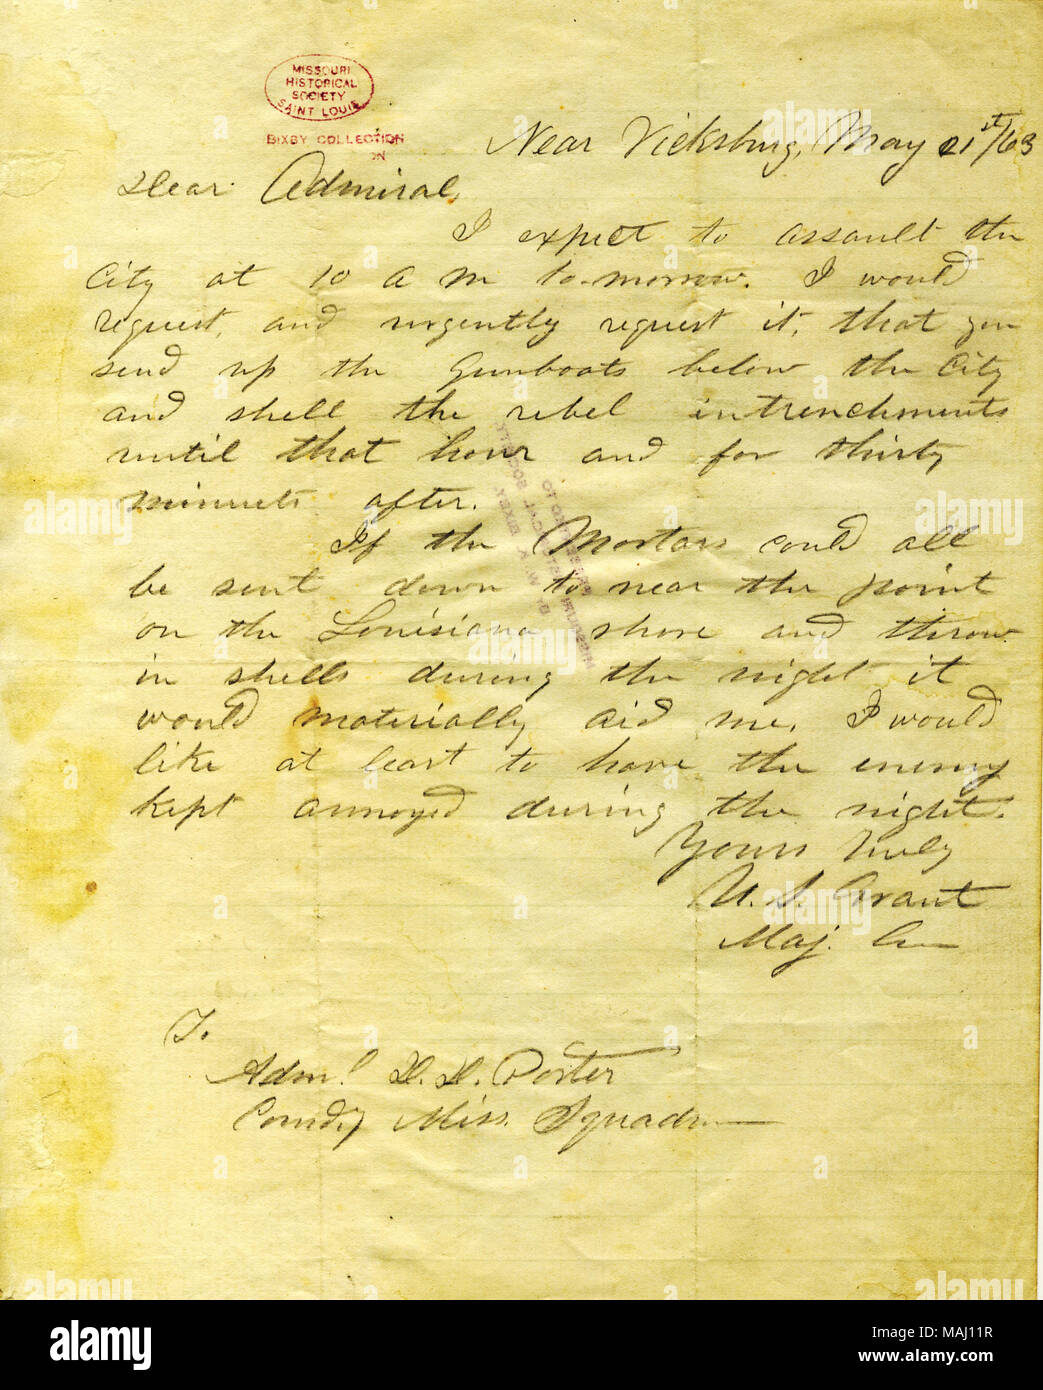 MISSOURI
HISTORICAL
SOCIETY
SAINT LOUIS
BIXBY COLLECTION
ON
Near Vicksburg, May 21st/63
Dear Admiral,
I expect to assault the
City at 10 a m to-morrow. I would
request, and urgently request it, that you
send up the Gunboats below the City
and shell the rebel intrenchments
until that hour and for thirty
minuets after.
If the Mortars could all
be sent down to near the point
on the Louisiana shore and throw
in shells during the night it
would materially aid me. I would
like at least to have the enemy
kept annoyed during the night.
Yours truly
U. S. Grant
Maj. Gen
To
Adm.l D. D. Porter
Comd.g Miss. Squadrn
PRESENTED TO
MISSOURI HISTORICAL SOCIETY
BY W. K. BIXBY
alamy
a
alamy
Image ID: MAJ11R
www.alamy.com